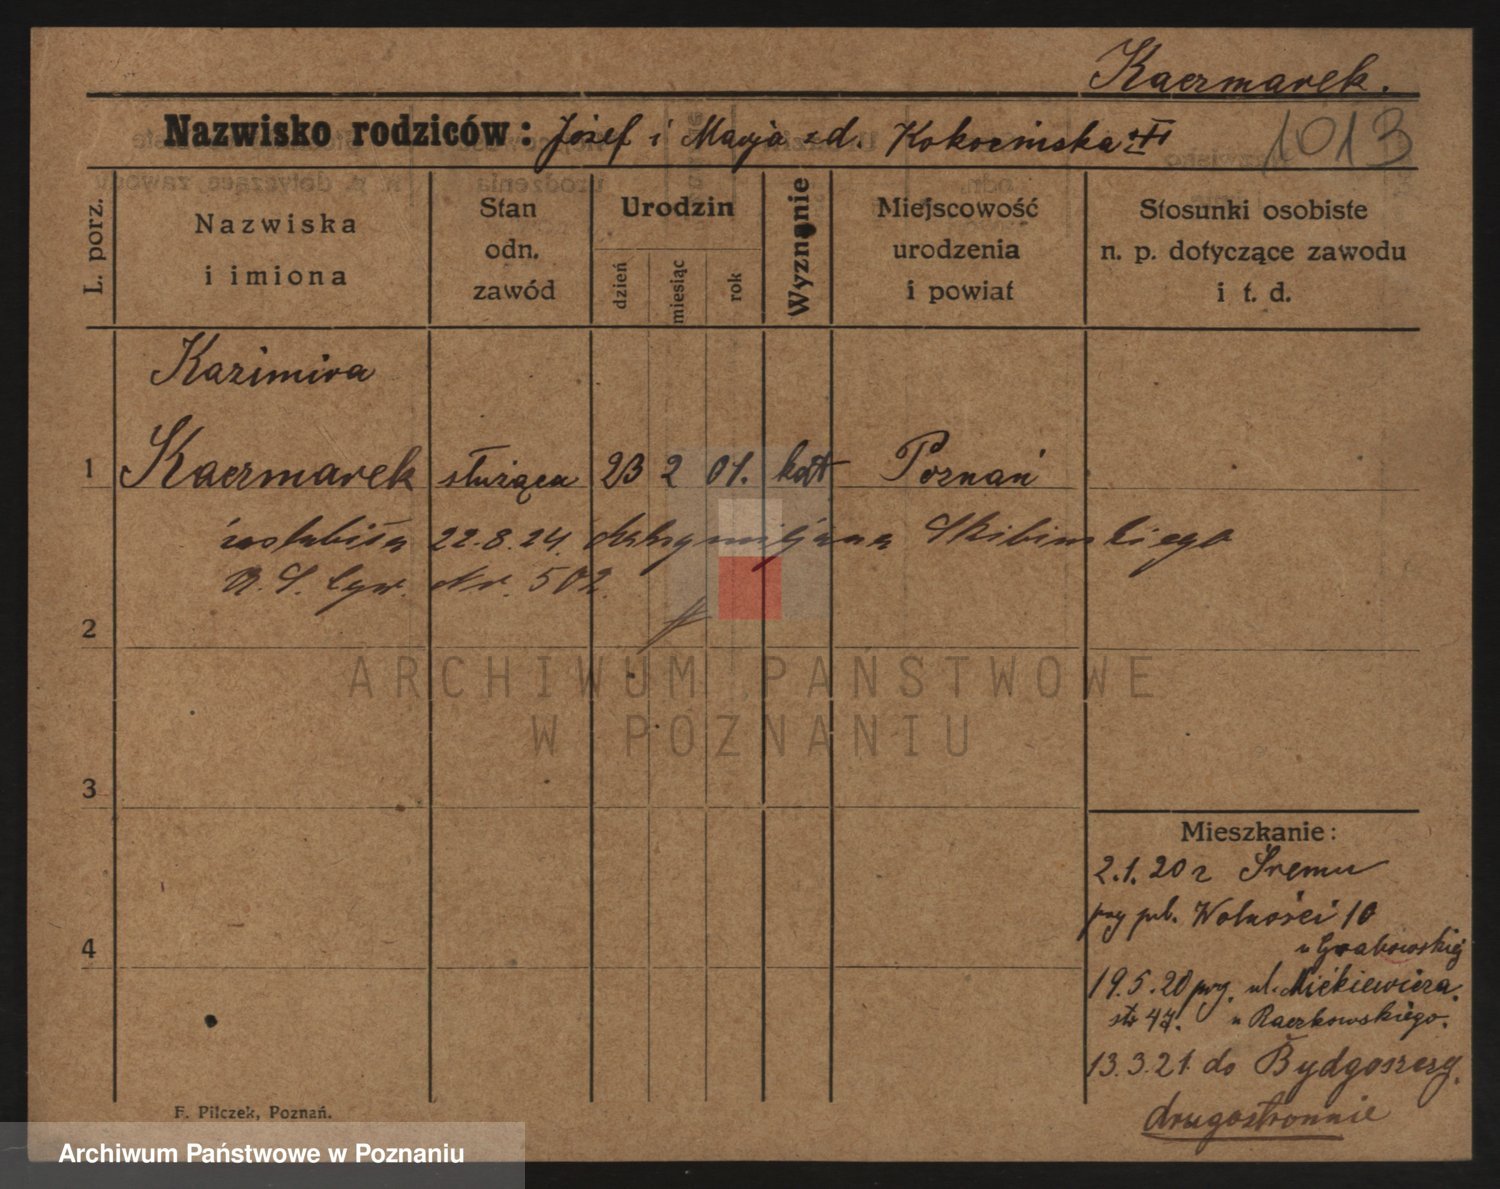 Kaczmarek.
Nazwisko rodziców: Józef i Marja zd. Kokocińska
1013
L. porz.
Nazwiska
i imiona
Stan
odn.
zawód
Urodzin
dzień
miesiąc
rok
Wyznanie
Miejscowość
urodzenia
i powiat
Stosunki osobiste
n. p. dotyczące zawodu
i t. d.
Kazimira
1 Kaczmarek służąca 23 2 01. kat Poznań
zaślubiła 22.8.24. Skibińskiego
Nr. 502
2
ARCHIWUM PAŃSTWOWE
W POZNANIU
3
Mieszkanie:
2.1.20 z Śremu
pl. Wolności 10
u Grabowskiej
4
19.5.20 ul. Mickiewicza
47. u Raczkowskiego.
13.3.21 do Bydgoszczy.
drugostronnie
F. Pilczek, Poznań.
Archiwum Państwowe w Poznaniu